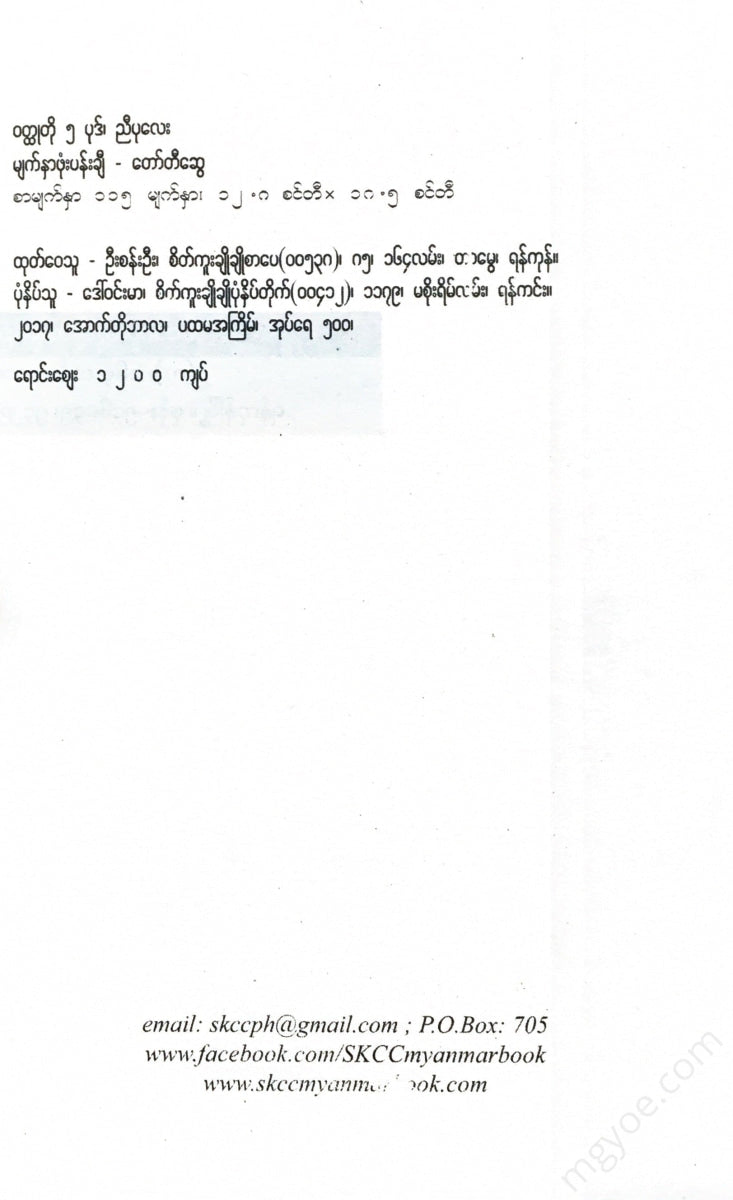 ဝတ္ထုတို ၅ ပုဒ်၊ ညီပုလေး
မျက်နှာဖုံးပန်းချီ - တော်တီဆွေ
စာမျက်နှာ ၁၁၅ မျက်နှာ၊ ၁၂.၈ စင်တီ× ၁၈.၅ စင်တီ
ထုတ်ဝေသူ - ဦးစန်းဦး၊ စိတ်ကူးချိုချိုစာပေ(၀၀၅၃၈)၊ ၈၅၊ ၁၆၄လမ်း၊ တာမွေ၊ ရန်ကုန်။
ပုံနှိပ်သူ - ဒေါ်ဝင်းမာ၊ စိတ်ကူးချိုချိုပုံနှိပ်တိုက်(၀၀၄၁၂)၊ ၁၁၇၉၊ မစိုးရိမ်လမ်း၊ ရန်ကင်း။
၂၀၁၇၊ အောက်တိုဘာလ၊ ပထမအကြိမ်၊ အုပ်ရေ ၅၀၀၊
ရောင်းစျေး ၁၂၀၀ ကျပ်
email: skccph@gmail.com ; P.O.Box: 705
www.facebook.com/SKCCmyanmarbook
mgyoe.com